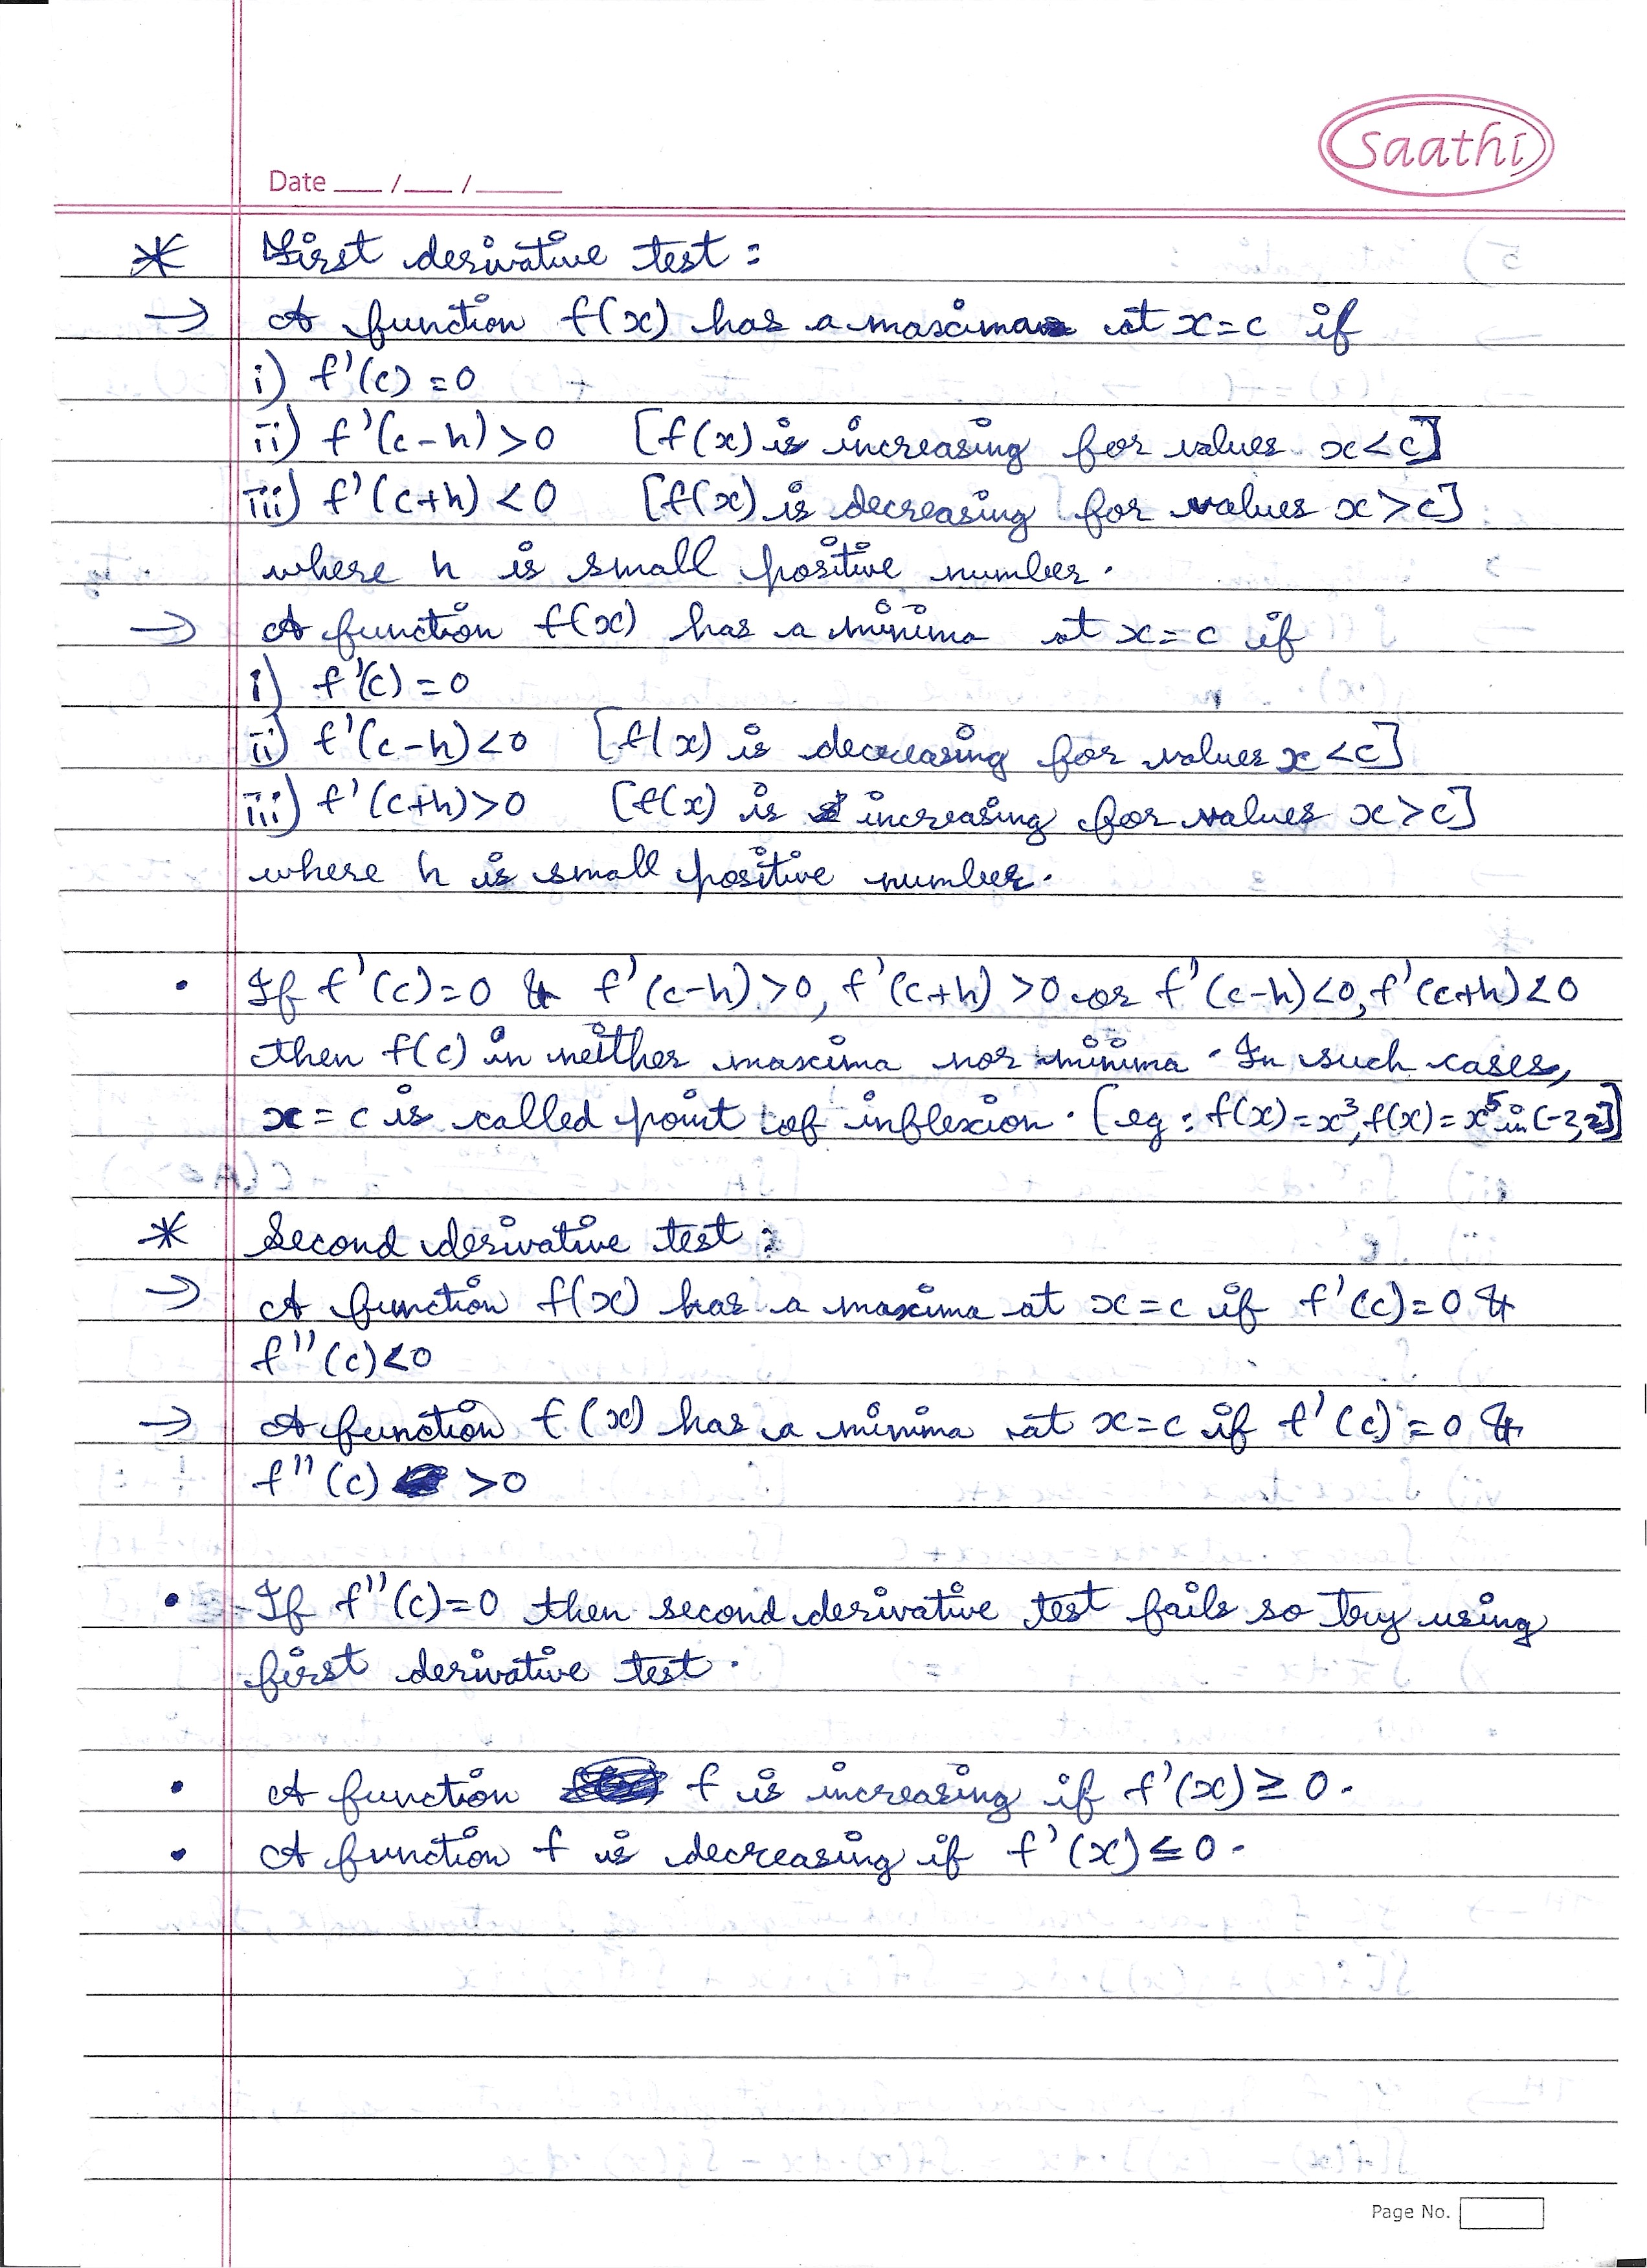 saathi
Date ___ / ___ / ______
* First derivative test :
→ A function f(x) has a maxima at x=c if
i) f'(c) = 0
ii) f'(c-h) > 0 [f(x) is increasing for values x<c]
iii) f'(c+h) < 0 [f(x) is decreasing for values x>c]
where h is small positive number.
→ A function f(x) has a minima at x=c if
i) f'(c) = 0
ii) f'(c-h) < 0 [f(x) is decreasing for values x<c]
iii) f'(c+h) > 0 [f(x) is increasing for values x>c]
where h is small positive number.
• If f'(c)=0 & f'(c-h)>0, f'(c+h)>0 or f'(c-h)<0, f'(c+h)<0
then f(c) in neither maxima nor minima. In such cases,
x=c is called point of inflexion. [eg : f(x)=x³, f(x)=x⁵ in [-2,2]]
* Second derivative test :
→ A function f(x) has a maxima at x=c if f'(c)=0 &
f''(c)<0
→ A function f(x) has a minima at x=c if f'(c)=0 &
f''(c) >0
• If f''(c)=0 then second derivative test fails so try using
first derivative test.
• A function f is increasing if f'(x) ≥ 0.
• A function f is decreasing if f'(x) ≤ 0.
Page No.